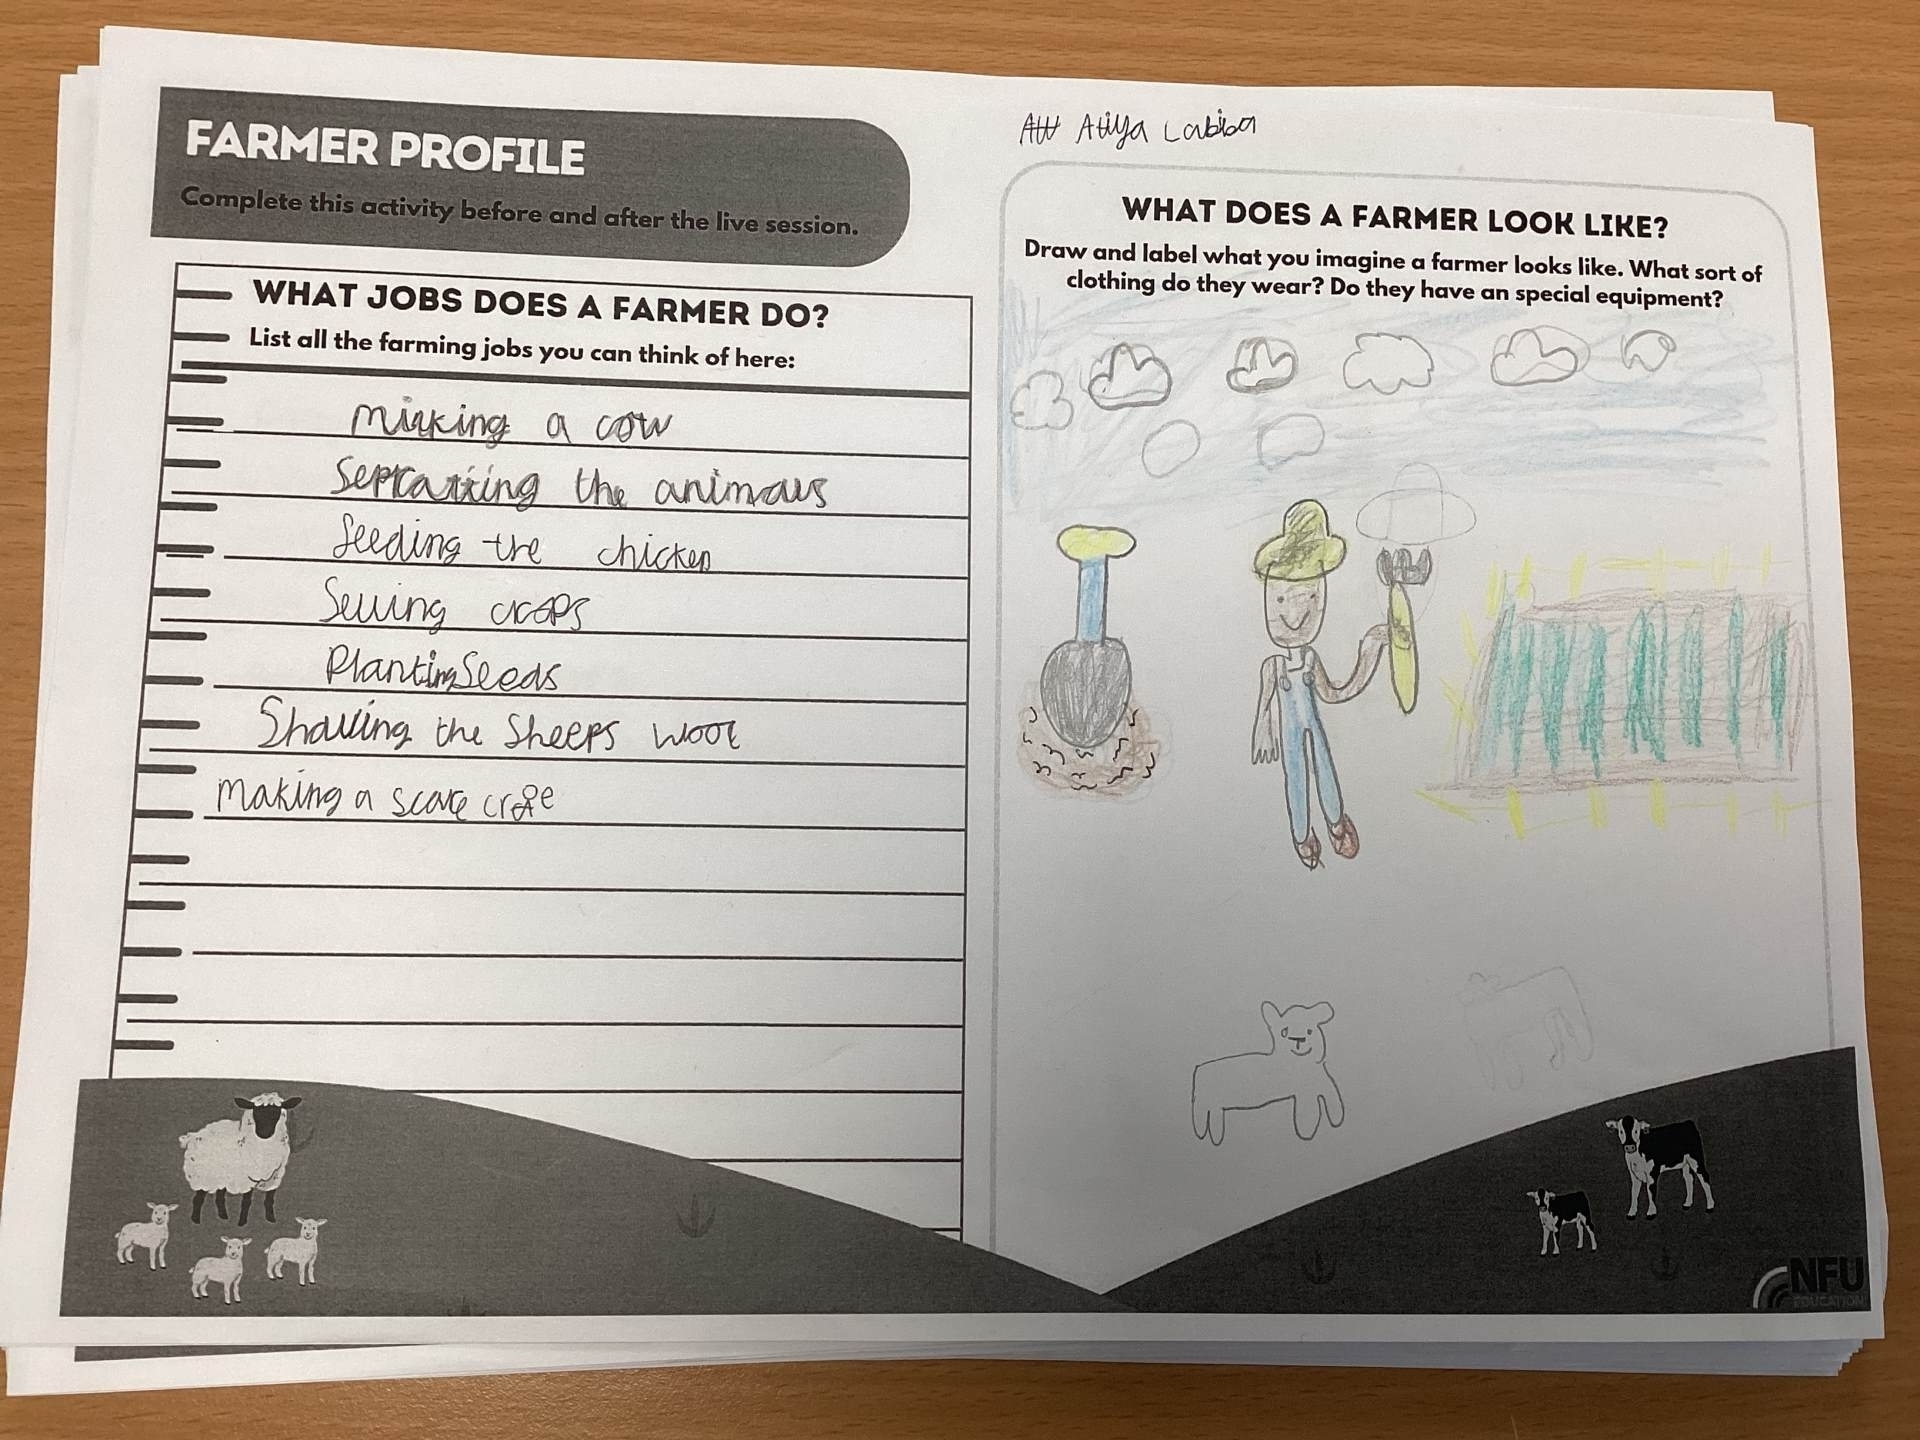 FARMER PROFILE
Complete this activity before and after the live session.
WHAT JOBS DOES A FARMER DO?
List all the farming jobs you can think of here:
milking a cow
the animals
feeding the chicken
Sewing crops
Planting Seeds
Shaving the Sheeps wool
making a scare
Atiya Labiba
WHAT DOES A FARMER LOOK LIKE?
Draw and label what you imagine a farmer looks like. What sort of
clothing do they wear? Do they have an special equipment?
NFU
EDUCATION